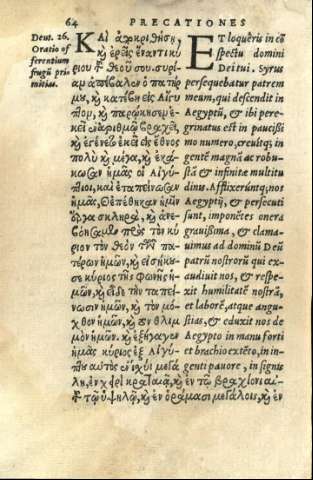 64 PRECATIONES
Deut. 26.
Oratio of
ferentium
frugũ pri
mitias.
ΚΑὶ ἀποκριθήσῃ,
καὶ ἐρεῖς ἔναντι κυ
ρίου τοῦ θεοῦ σου. συρί
αν ἀπέβαλεν ὁ πατήρ
μου, καὶ κατέβη εἰς Αἴγυ
πτον, καὶ παρῴκησεν ἐ
κεῖ ἐν ἀριθμῷ βραχεῖ,
καὶ ἐγένετο ἐκεῖ εἰς ἔθνος
πολὺ καὶ μέγα, καὶ ἐκά
κωσαν ἡμᾶς οἱ Αἰγύ
πτιοι, καὶ ἐταπείνωσαν
ἡμᾶς, καὶ ἐπέθηκαν ἡμῖν
ἔργα σκληρά, καὶ ἀνε-
βοήσαμεν πρὸς τὸν κύ
ριον τὸν θεὸν τῶν πα
τέρων ἡμῶν, καὶ εἰσήκου
σε κύριος τῆς φωνῆς ἡ
μῶν, καὶ εἶδε τὴν ταπεί
νωσιν ἡμῶν, καὶ τὸν μό-
χθον ἡμῶν, καὶ τὸν θλιμ
μὸν ἡμῶν, καὶ ἐξήγαγεν
ἡμᾶς κύριος ἐξ Αἰγύ-
πτου αὐτὸς ἰσχύϊ μεγά
λῃ, ἐν χειρὶ κραταιᾷ, καὶ ἐν τῷ βραχίονι αὐ-
τοῦ τῷ ὑψηλῷ, καὶ ἐν ὁράμασι μεγάλοις, καὶ ἐν
ET loquêris in cõ
spectu domini
Dei tui. Syrus
persequebatur patrem
meum, qui descendit in
Aegyptũ, & ibi pere-
grinatus est in paucissi
mo numero, creuitq; in
gentẽ magnã ac robu-
stã & infinitæ multitu
dinis. Afflixeruntq; nos
Aegyptij, & persecuti
sunt, imponẽtes onera
grauissima, & clama-
uimus ad dominũ Deũ
patrũ nostrorũ qui ex-
audiuit nos, & respe-
xit humilitatẽ nostrã,
et laborẽ, atque angu-
stias, & eduxit nos de
Aegypto in manu forti
et brachio extẽto, in in-
genti pauore, in signis